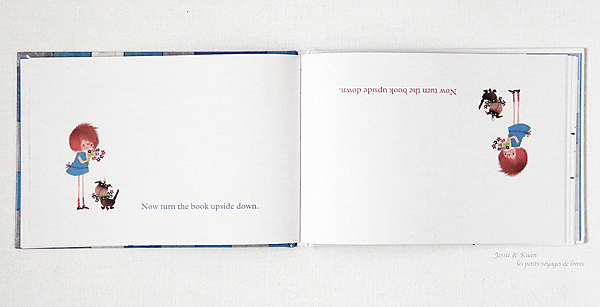 Now turn the book upside down.
Now turn the book upside down.
Jessie & Kuan
les petits voyages de livres